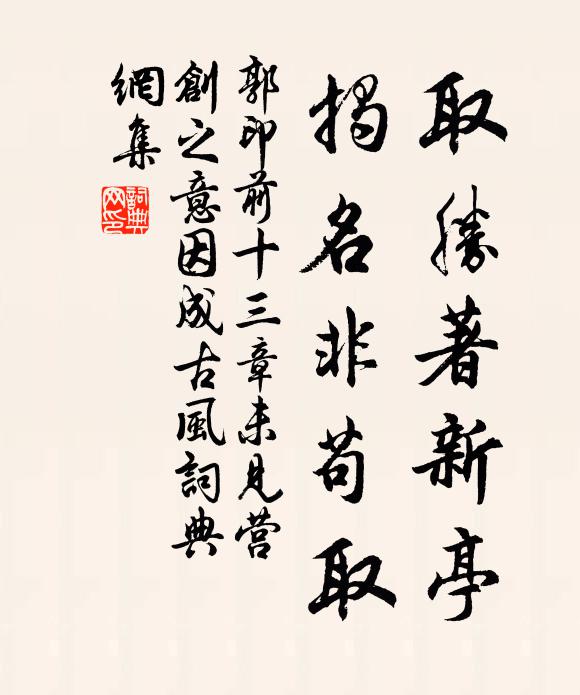 取勝著新亭
揭名非苟取
郭印前十三章未見营
創之意因成古風詞典
網集
詞典网印